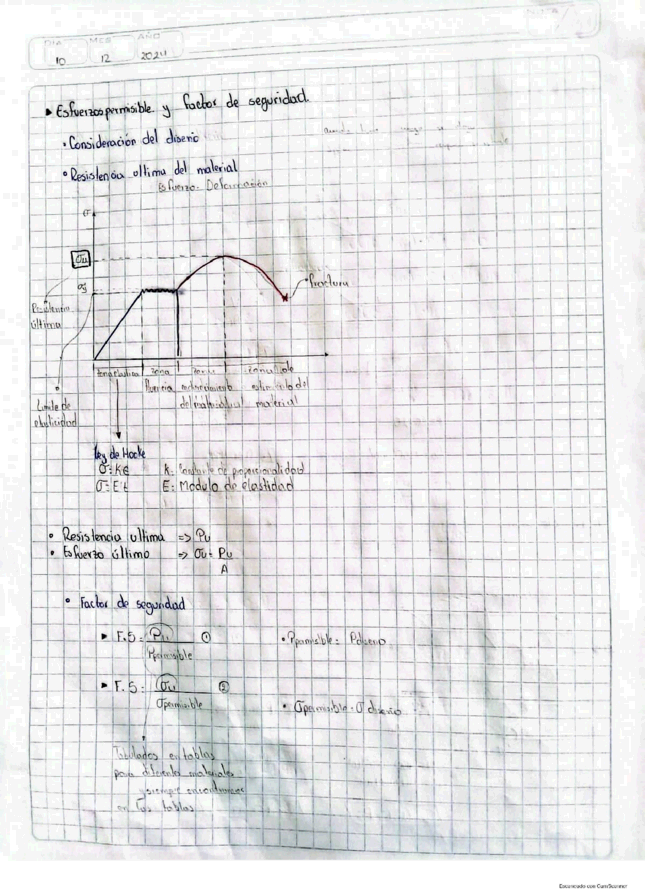 DIA MES AÑO
10 12 2024
▸ Esfuerzos permisible y factor de seguridad.
• Consideración del diseño
• Resistencia ultima del material
Esfuerzo - Deformación
σ
σu
σy
Fractura
Resistencia
última
Zona elastica Zona zona zona de
fluencia endurecimiento estiramiento del
del material material
Limite de
elasticidad
Ley de Hooke
σ=Kϵ K: Constante de proporcionalidad
σ=Eϵ E: Modulo de elastidad
• Resistencia ultima => Pu
• Esfuerzo último => σu= Pu
A
• Factor de seguridad
▸ F.S = Pu ① • Ppermisible = Pdiseño
Ppermisible
▸ F.S = σu ②
σpermisible • σpermisible = σ diseño
Tabulados en tablas
para diferentes materiales
y siempre encontramos
en las tablas
Escaneado con CamScanner